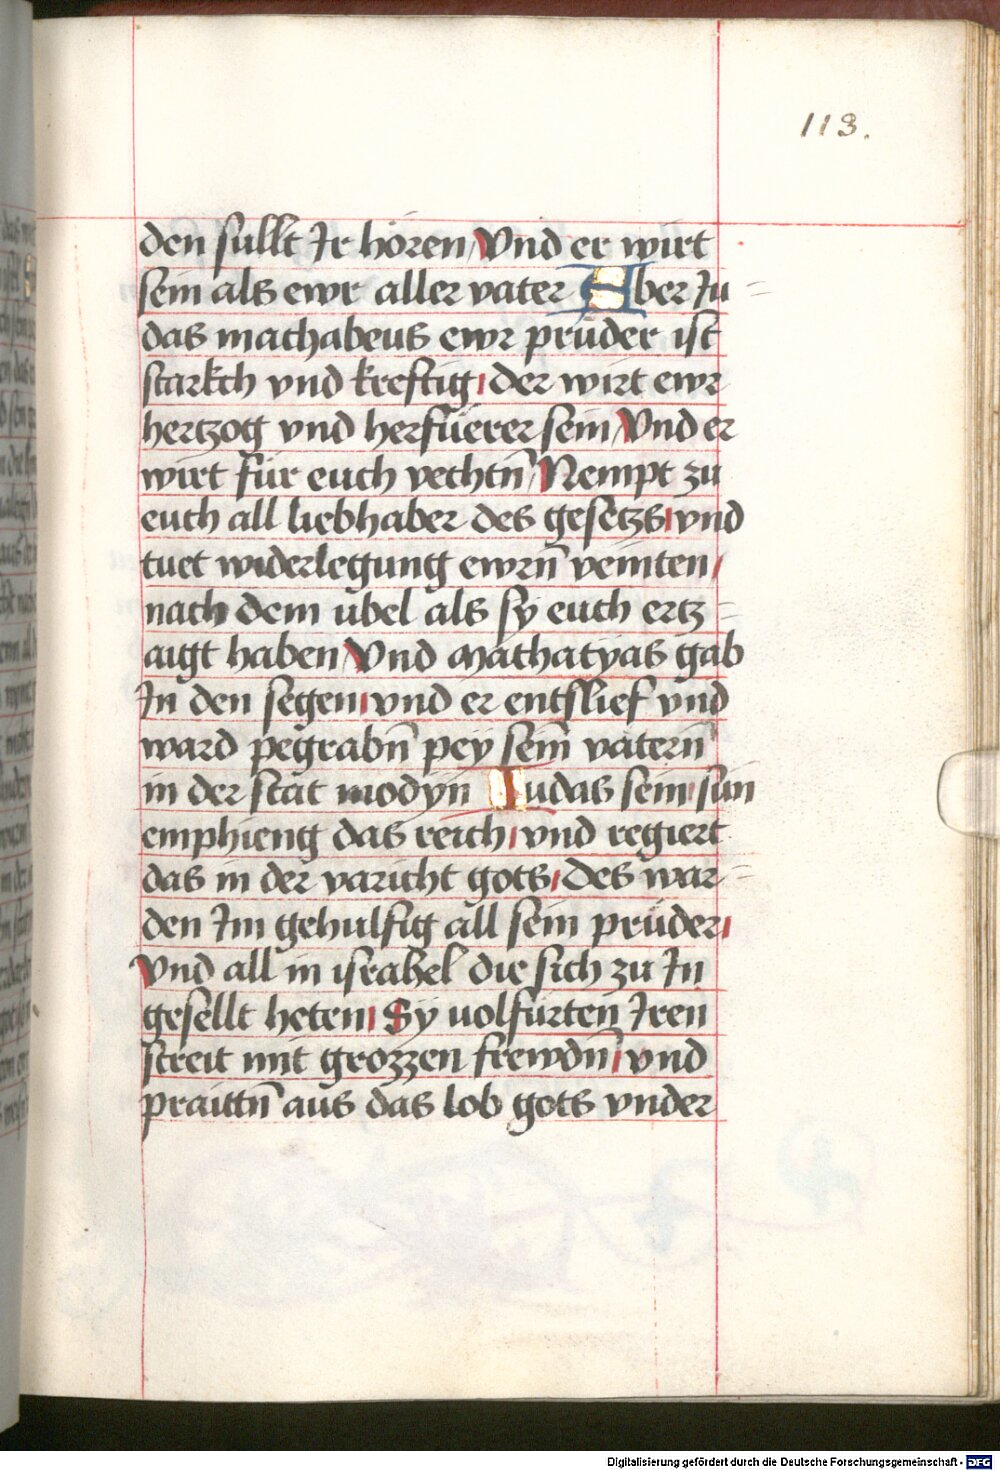 113.
den sullt Ir hören, Vnd er wirt
sein als ewr aller vater Aber Ju=
das machabeus ewr prüder ist
starkch vnd kreftig, der wirt ewr
hertzog vnd herfüerer sein, Vnd er
wirt für euch vechtn̄, Nempt zu
euch all liebhaber des gesetzs, vnd
tuet widerlegung ewrn̄ veinten,
nach dem übel als sy euch ertz=
aigt haben, Vnd Mathatyas gab
In den segen, vnd er entslief vnd
ward pegrabn̄ pey sein̄ vatern̄
in der stat modyn Iudas sein sun
emphieng das reich, vnd regiert
das in der varicht gots, des war=
den Im gehulfig all sein prüder,
Vnd all in israhel die sich zu In
gesellt heten, Sy uolfürten Iren
streit mit grozzen frewdn̄, vnd
praittn̄ aus das lob gots vnder
Digitalisierung gefördert durch die Deutsche Forschungsgemeinschaft - DFG